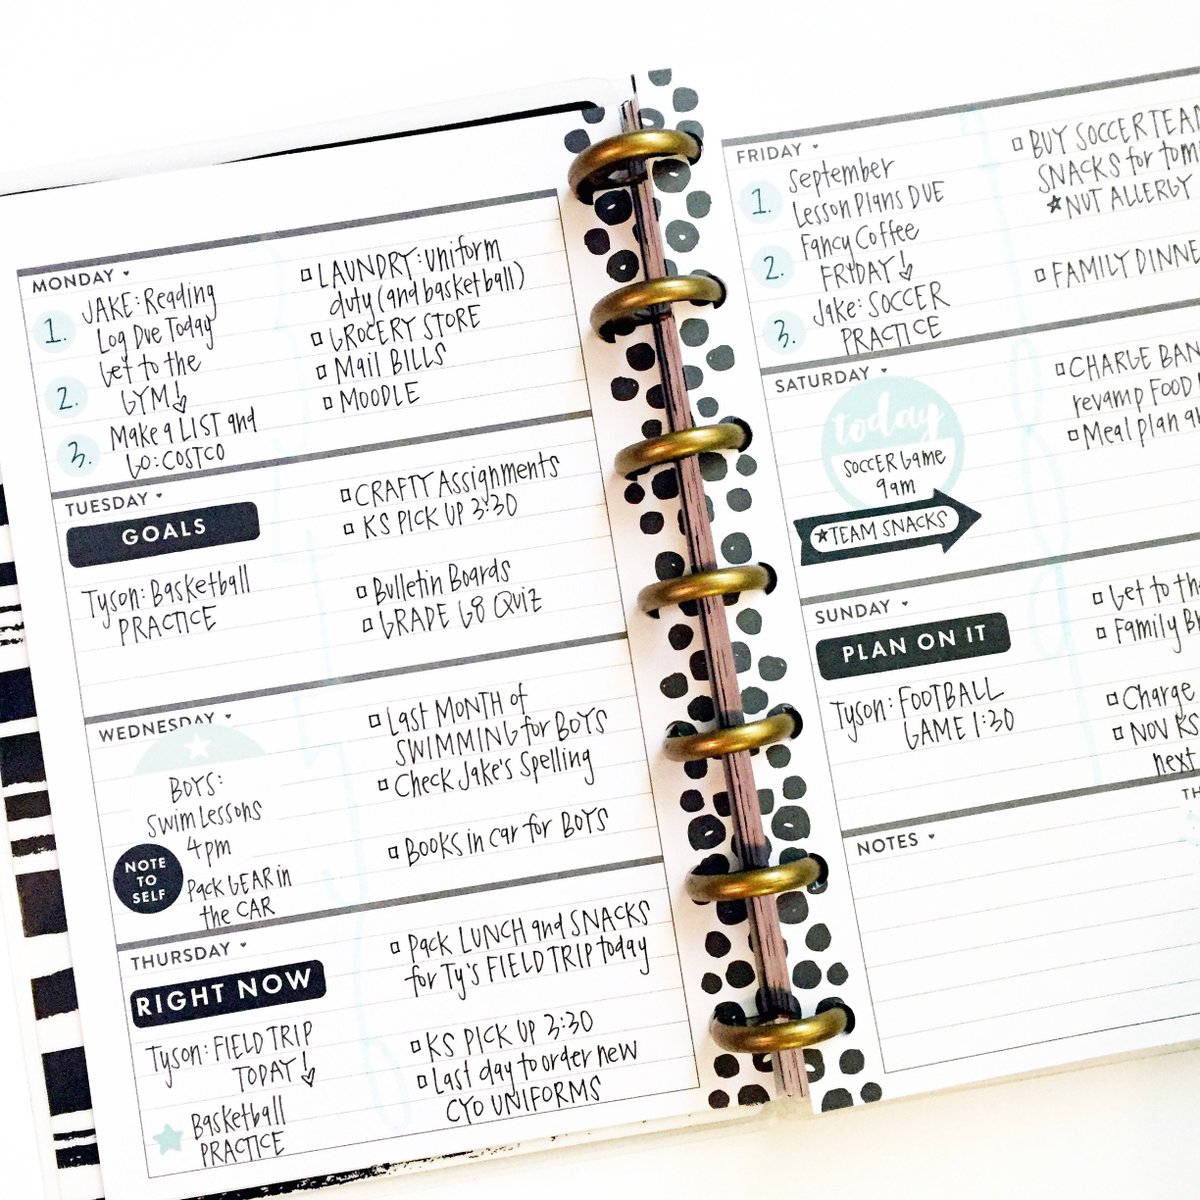 MONDAY
1.
JAKE: Reading
Log Due Today
2.
Get to the
GYM!
3.
Make a LIST and
GO: COSTCO
LAUNDRY: uniform
duty (and basketball)
GROCERY STORE
Mail BILLS
MOODLE
TUESDAY
GOALS
Tyson: Basketball
PRACTICE
CRAFTY Assignments
KS PICK UP 3:30
Bulletin Boards
GRADE G8 QUIZ
WEDNESDAY
BOYS:
Swim Lessons
4pm
NOTE
TO
SELF
Pack GEAR in
the CAR
Last MONTH of
SWIMMING for BOYS
Check Jake's Spelling
Books in car for BOYS
THURSDAY
RIGHT NOW
Tyson: FIELD TRIP
TODAY!
Basketball
PRACTICE
Pack LUNCH and SNACKS
for Ty's FIELD TRIP today
KS PICK UP 3:30
Last day to order new
CYO UNIFORMS
FRIDAY
1.
September
Lesson Plans DUE
2.
Fancy Coffee
FRIDAY!
3.
Jake: SOCCER
PRACTICE
BUY SOCCER TEA
SNACKS for tom
NUT ALLERGY
FAMILY DINNE
SATURDAY
today
SOCCER GAME
9am
TEAM SNACKS
CHARGE BAN
revamp FOOD
Meal plan a
SUNDAY
PLAN ON IT
Tyson: FOOTBALL
GAME 1:30
Get to th
Family B
Charge
NOV KS
next
NOTES
TH